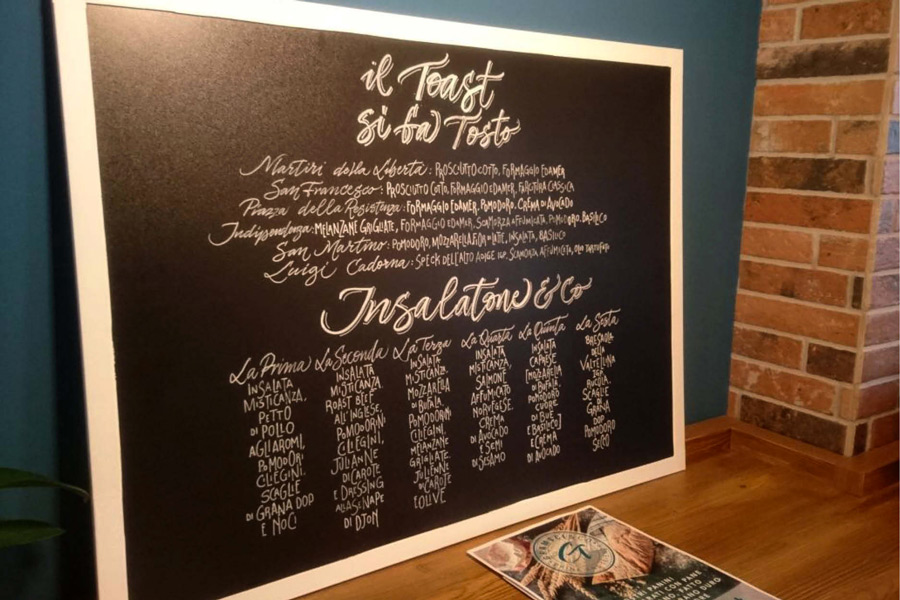 il Toast
si fa Tosto
Martiri della Libertà: PROSCIUTTO COTTO, FORMAGGIO EDAMER
San Francesco: PROSCIUTTO COTTO, FORMAGGIO EDAMER, FARCITURA CLASSICA
Piazza della Resistenza: FORMAGGIO EDAMER, POMODORO, CREMA DI AVOCADO
Indipendenza: MELANZANE GRIGLIATE, FORMAGGIO EDAMER, SCAMORZA AFFUMICATA, POMODORO, BASILICO
San Martino: POMODORO, MOZZARELLA FIOR DI LATTE, INSALATA, BASILICO
Luigi Cadorna: SPECK DELL'ALTO ADIGE IGP, SCAMORZA AFFUMICATA, OLIO TARTUFATO
Insalatone & Co
La Prima
INSALATA
MISTICANZA,
PETTO
DI POLLO
AGLIAROMI,
POMODORI
CILEGINI,
SCAGLIE
DI GRANA DOP
E NOCI
La Seconda
INSALATA
MISTICANZA,
ROAST BEEF
ALL'INGLESE,
POMODORINI
CILEGINI,
JULIANNE
DI CAROTE
E DRESSING
ALLA SENAPE
DI DJON
La Terza
INSALATA
MISTICANZA,
MOZZARELLA
DI BUFALA,
POMODORINI
CILEGINI,
MELANZANE
GRIGLIATE,
JULIENNE
DI CAROTE
E OLIVE
La Quarta
INSALATA
MISTICANZA,
SALMONE
AFFUMICATO
NORVEGESE,
CREMA
DI AVOCADO
E SEMI
DI SESAMO
La Quinta
INSALATA
CAPRESE
[MOZZARELLA
DI BUFALA,
POMODORO
CUORE
DI BUE
E BASILICO]
E CREMA
DI AVOCADO
La Sesta
BRESAOLA
DELLA
VALTELLINA
IGP,
RUCOLA,
SCAGLIE
DI
GRANA
DOP
POMODORO
SECCO
PANINI
CON PANE
GRANO DURO